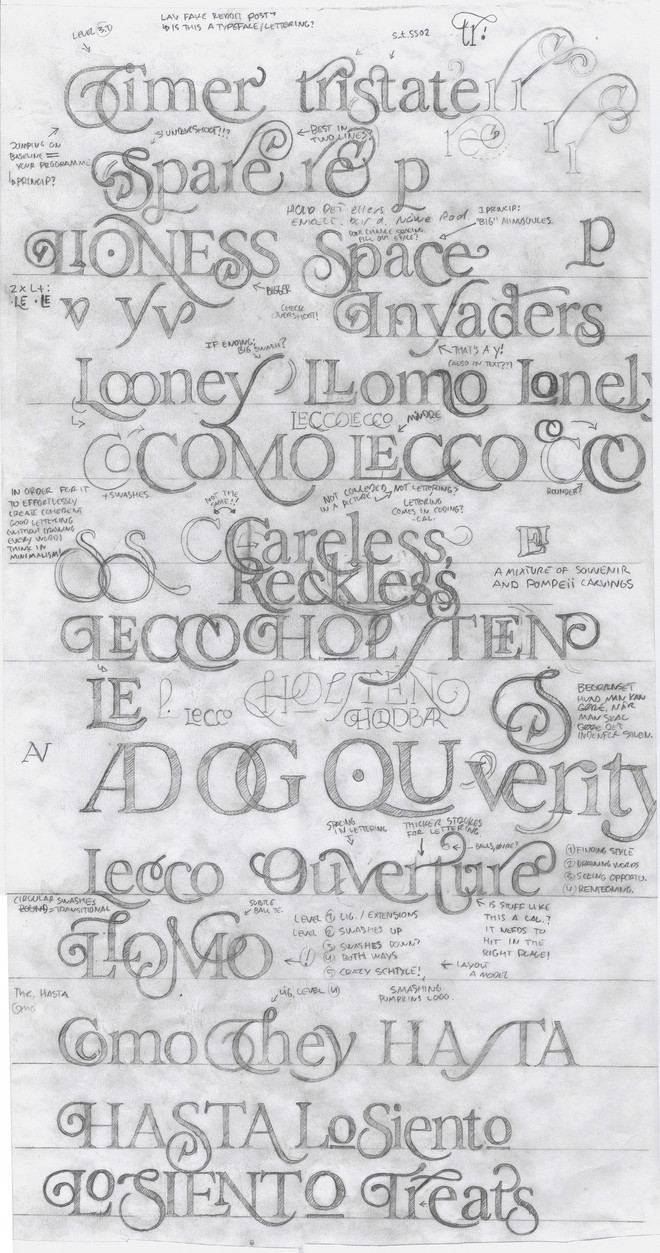 LAV FAKE REDDIT POST →
IS THIS A TYPEFACE/LETTERING?
LEVEL 3.1)
s.t. SS02
tr!
Timer tristate
UNDERSHOOT!!?
← BEST IN
TWO LINES?
JUMPING ON
BASELINE =
YOUR PROGRAMME
PRINCIP?
Spare re p
HOLD DET ellers
I PRINCIP:
"BIG" MINUSCULES.
LIONESS Space p
← BIGGER
2 x L+:
·LE ·LE
CHECK
OVERSHOOT!
v y v Invaders
IF ENDING;
BIG SWASH?
THAT'S A Y!
(ALSO IN TEXT??)
Looney LLomo Lonely
LECCOLECCO
MINDRE
COMO LECCO CO
+ SWASHES
ROUNDER?
IN ORDER FOR IT
TO EFFORTLESSLY
CREATE COHERENT
GOOD LETTERING
(WITHOUT DRAWING
EVERY WORD)
THINK IN
MINIMALISM!
NOT THE
SAME!!
NOT COLLECTED
IN A PICTURE
NOT LETTERING?
LETTERING
COMES IN CODING?
-CAL.
Careless,
E
Reckless
A MIXTURE OF SOUVENIR
AND POMPEII CARVINGS
LECCO HOLSTEN
LE L LECCO HOLSTEN
HOLDBAR
S
BEGRÆNSET
HVAD MAN KAN
GØRE, NÅR
MAN SKAL
GØRE DET
INDENFOR
AV
AD OG QU verity
SPACING
IN LETTERING
THICKER STROKES
FOR LETTERING
Lecco Ouverture
① FINDING STYLE
② DRAWING WORDS
③ SEEING OPPORTU.
④ REWTEKNING.
CIRCULAR SWASHES
ROUND = TRANSITIONAL
SUBTLE
BALL TE.
LOMO
LEVEL ① LIG. / EXTENSIONS
LEVEL ② SWASHES UP
③ SWASHES DOWN?
④ BOTH WAYS
⑤ CRAZY SCHTYLE!
IS STUFF LIKE
THIS A CAL.?
IT NEEDS TO
HIT IN THE
RIGHT PLACE!
← LAYOUT
A MODEL
The, HASTA
Como
LIG, LEVEL (4)
SMASHING
PUMPKINS LOGO.
Como They HASTA
HASTA LoSiento
LoSIENTO Treats